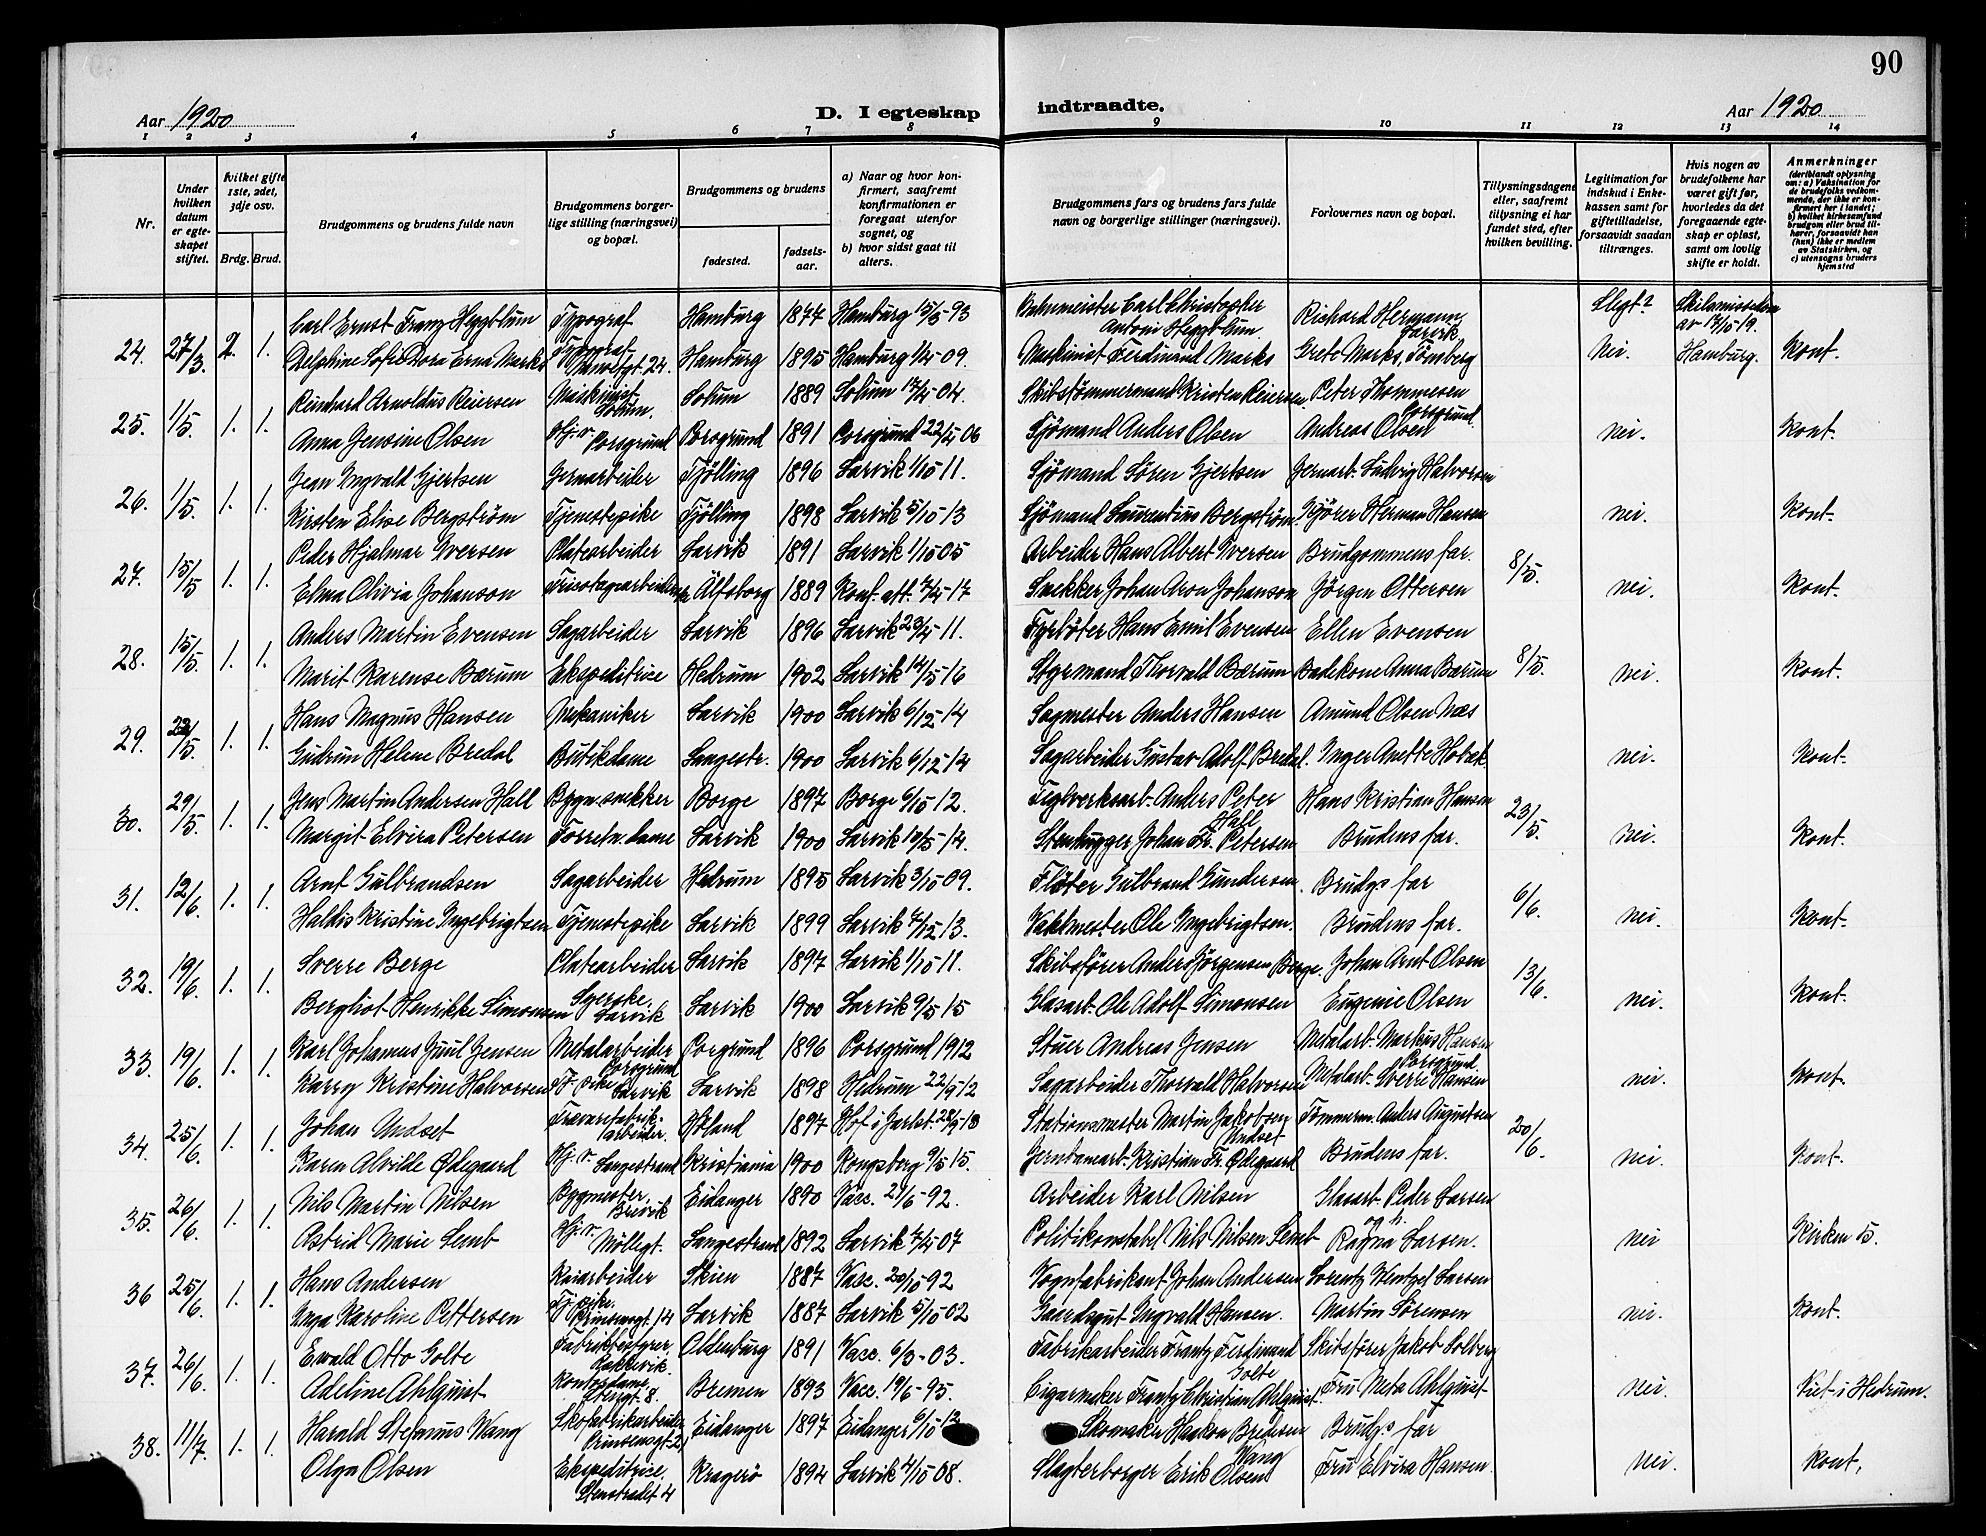 90
Aar 1920
D. I egteskap indtraadte.
Aar 1920
1 2 3 4 5 6 7 8 9 10 11 12 13 14
Nr.
Under hvilken datum er egteskapet stiftet.
hvilket gifte 1ste, 2det, 3dje osv.
Brdg. Brud.
Brudgommens og brudens fulde navn
Brudgommens borgerlige stilling (næringsvei) og bopæl.
Brudgommens og brudens
fødested.
fødselsaar.
a) Naar og hvor konfirmert, saafremt konfirmationen er foregaat utenfor sognet, og
b) hvor sidst gaat til alters.
Brudgommens fars og brudens fars fulde navn og borgerlige stillinger (næringsvei).
Forlovernes navn og bopæl.
Tillysningsdagene eller, saafremt tillysning ei har fundet sted, efter hvilken bevilling.
Legitimation for indskud i Enkekassen samt for giftetilladelse, forsaavidt saadan tiltrænges.
Hvis nogen av brudefolkene har været gift før, hvorledes da det foregaaende egteskap er opløst, samt om lovlig skifte er holdt.
Anmerkninger (deriblandt oplysning om: a) Vaksination for de brudefolks vedkommende, der ikke er konfirmert her i landet; b) hvilket kirkesamfund brudgom eller brud tilhører, forsaavidt han (hun) ikke er medlem av Statskirken, og c) utensogns bruders hjemsted
Carl Ernst Franz Heggblum Typograf Hamburg 1877 Hamburg 15/3-93 Carl Christopher Antoni Heggblum Richard Hermann Larvik Slegt? Skilsmissedom av 17/10-19.
24. 27/3. 2. 1. Delphine Sofie Dora Erna Marks Hamburg 1895 Hamburg 1/4-09. Maskinist Ferdinand Marks Grete Marks, Tønsberg Nei. Hamburg. Kont.
Reinhard Arnoldus Reiersen Maskinist Solum. Solum 1889 Solum 17/4-04. Skibstømmermand Kristen Reiersen Peter Thommesen Porsgrund
25. 1/5. 1. 1. Anna Jensine Olsen Hj. v. Porsgrund Porsgrund 1891 Porsgrund 22/4 06 Sjømand Anders Olsen Andreas Olsen nei. Kont.
Jean Ingvald Gjertsen Jernarbeider Tjølling 1896 Larvik 1/10-11. Sjømand Søren Gjertsen Jernarb. Ludvig Halvorsen
26. 1/5. 1. 1. Kirsten Elise Bergstrøm Tjenestepike Tjølling 1898 Larvik 5/10-13 Sjømand Laurentius Bergstrøm. Kjører Herman Hansen nei. Kont.
Peder Hjalmar Iversen Platearbeider Larvik 1891 Larvik 1/10-05 Arbeider Hans Albert Iversen Brudgommens far.
27. 15/5 1. 1. Elma Olivia Johanson Tricotagearbeiderske Älfsborg 1889 Konf. att. 7/4-17 Snekker Johan Aron Johanson Jørgen Ottersen 8/5. nei. Kont.
Anders Martin Evensen Sagarbeider Larvik 1896 Larvik 23/4-11. Fyrbøter Hans Emil Evensen Ellen Evensen
28. 15/5. 1. 1. Marit Karense Bærum Ekspeditrice Hedrum 1902 Larvik 14/5-16 Styrmand Thorvald Bærum Badekone Anna Bærum 8/5. nei. Kont.
Hans Magnus Hansen Mekaniker Larvik 1900 Larvik 6/12-14 Sagmester Anders Hansen Amund Olsen Næs
29. 22/5. 1. 1. Gudrun Helene Bredal Butikdame Langestr. 1900 Larvik 6/12-14 Sagarbeider Gustav Adolf Bredal. Inger Anette Holæk nei. Kont.
Jens Martin Andersen Hall Bygn.snekker Borge 1897 Borge 6/10 12. Teglverksarb. Anders Peter Hall Hans Kristian Hansen
30. 29/5. 1. 1. Margit Elvira Petersen Forretn.dame Larvik 1900 Larvik 10/5-14. Stenhugger Johan Fr. Petersen Brudens far. 23/5. nei. Kont.
Arnt Gulbrandsen Sagarbeider Hedrum 1895 Larvik 3/10 09. Fløter Gulbrand Gundersen. Brudgs far
31. 12/6. 1. 1. Haldis Kristine Ingebrigtsen Tjenestepike Larvik 1899 Larvik 7/12-13. Vaktmester Ole Ingebrigtsen. Brudens far. 6/6. nei. Kont.
Sverre Berge Platearbeider Larvik 1897 Larvik 1/10-11. Skibsfører Anders Jørgensen Berge. Johan Arnt Olsen
32. 19/6. 1. 1. Bergliot Henrikke Simonsen Syerske. Larvik Larvik 1900 Larvik 9/5-15 Glasarb. Ole Adolf Simonsen Eugenie Olsen 13/6. nei. Kont.
Karl Johannes Juul Jensen Metalarbeider Porsgrund Porsgrund 1896 Porsgrund 1912 Stuer Andreas Jensen Metalarb. Markus Hansen Porsgrund
33. 19/6. 1. 1. Karry Kristine Halvorsen Tj. pike Larvik Larvik 1898 Hedrum 22/9-12 Sagarbeider Thorvald Halvorsen Metalarb. Sverre Hansen nei. Kont.
Johan Undset Trævarefabrikarbeider. Høland 1897 Hof i Jarlsb. 28/9-13 Stationsmester Martin Jakobsen Undset Tømmerm. Anders Augustsen
34. 25/6. 1. 1. Karen Alvilde Ødegaard Hj. v. Langestrand Kristiania 1900 Kongsberg 9/5 15. Jernbanearb. Kristian Fr. Ødegaard Brudens far. 20/6. nei. Kont.
Nils Martin Nilsen Bygmester, Brevik Eidanger 1890 Vacc. 21/6-92. Arbeider Karl Nilsen Glasarb. Peder Larsen
35. 26/6. 1. 1. Astrid Marie Lemb Hj. v. Møllegt. Langestrand 1892 Larvik 7/4 07 Politikonstabel Nils Nilsen Lemb og h. Ragna Larsen. nei Kirken 5.
Hans Andersen Kaiarbeider Skien 1887 Vacc. 20/10-92 Vognfabrikant Johan Andersen Lorentz Wentzel Larsen
36 25/6. 1. 1. Inga Karoline Pettersen Tj.pike. Prinsensgt. 14 Larvik 1887 Larvik 5/10 02 Gaardsgut Ingvald Hansen. Martin Sørensen nei. Kont.
Ewald Otto Golte Fabrikbestyrer, Oldenburg 1891 Vacc. 6/3-03. Fabrikarbeider Frantz Ferdinand Golte Skibsfører Jakob Solberg
37. 26/6. 1. 1. Adeline Ahlquist Kontordame. Bremen 1893 Vacc. 19/6-95. Cigarmaker Frantz Christian Ahlquist. Fru Meta Ahlquist nei. Viet i Hedrum.
Harald Stefanus Wang Skofabrikarbeider Prinsensgt. 2, Eidanger 1897 Eidanger 6/10 12 Skomaker Haakon Bredesen Wang Brudgs far
38. 11/7. 1. 1. Olga Olsen Ekspeditrice. Stenstrædet 4 Kragerø 1894 Larvik 4/10 08. Slagterborger Erik Olsen Fru Elvira Hansen. nei. Kont.